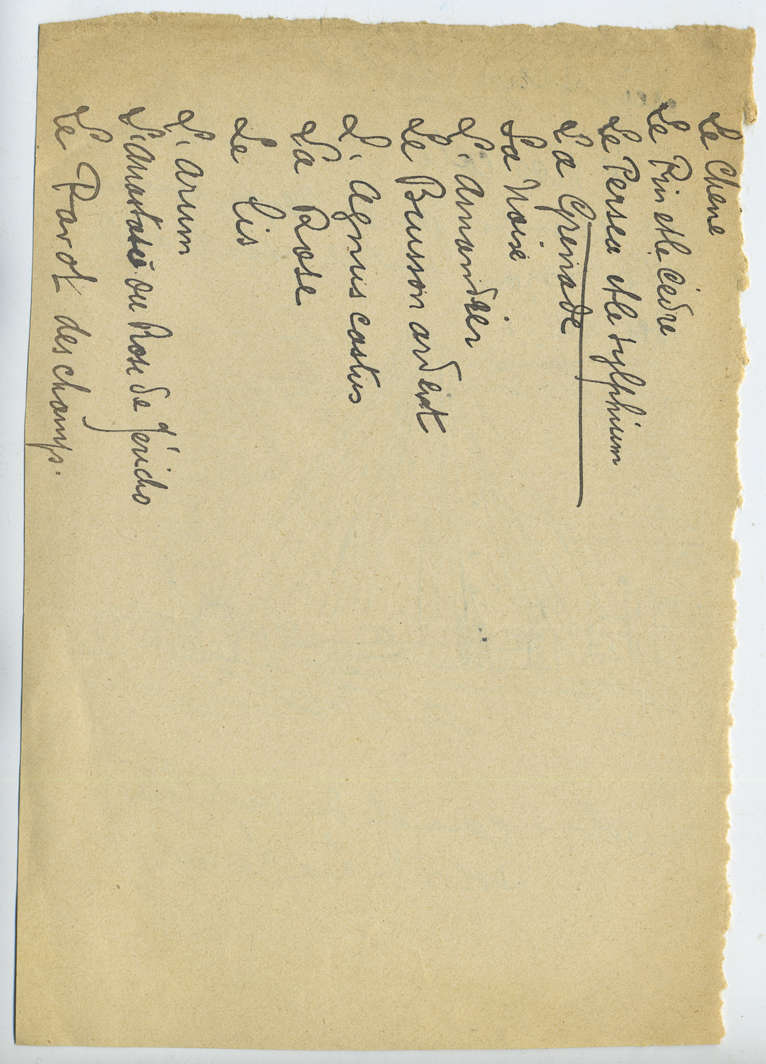 Le Chêne
Le Pin et le Cèdre
Le Persea et le sylphium
La Grenade
La Noix
L'amandier
Le Buisson ardent
L'agnus castus
La Rose
Le lis
L'arum
L'anastasie ou Rose de Jéricho
Le Pavot des champs.